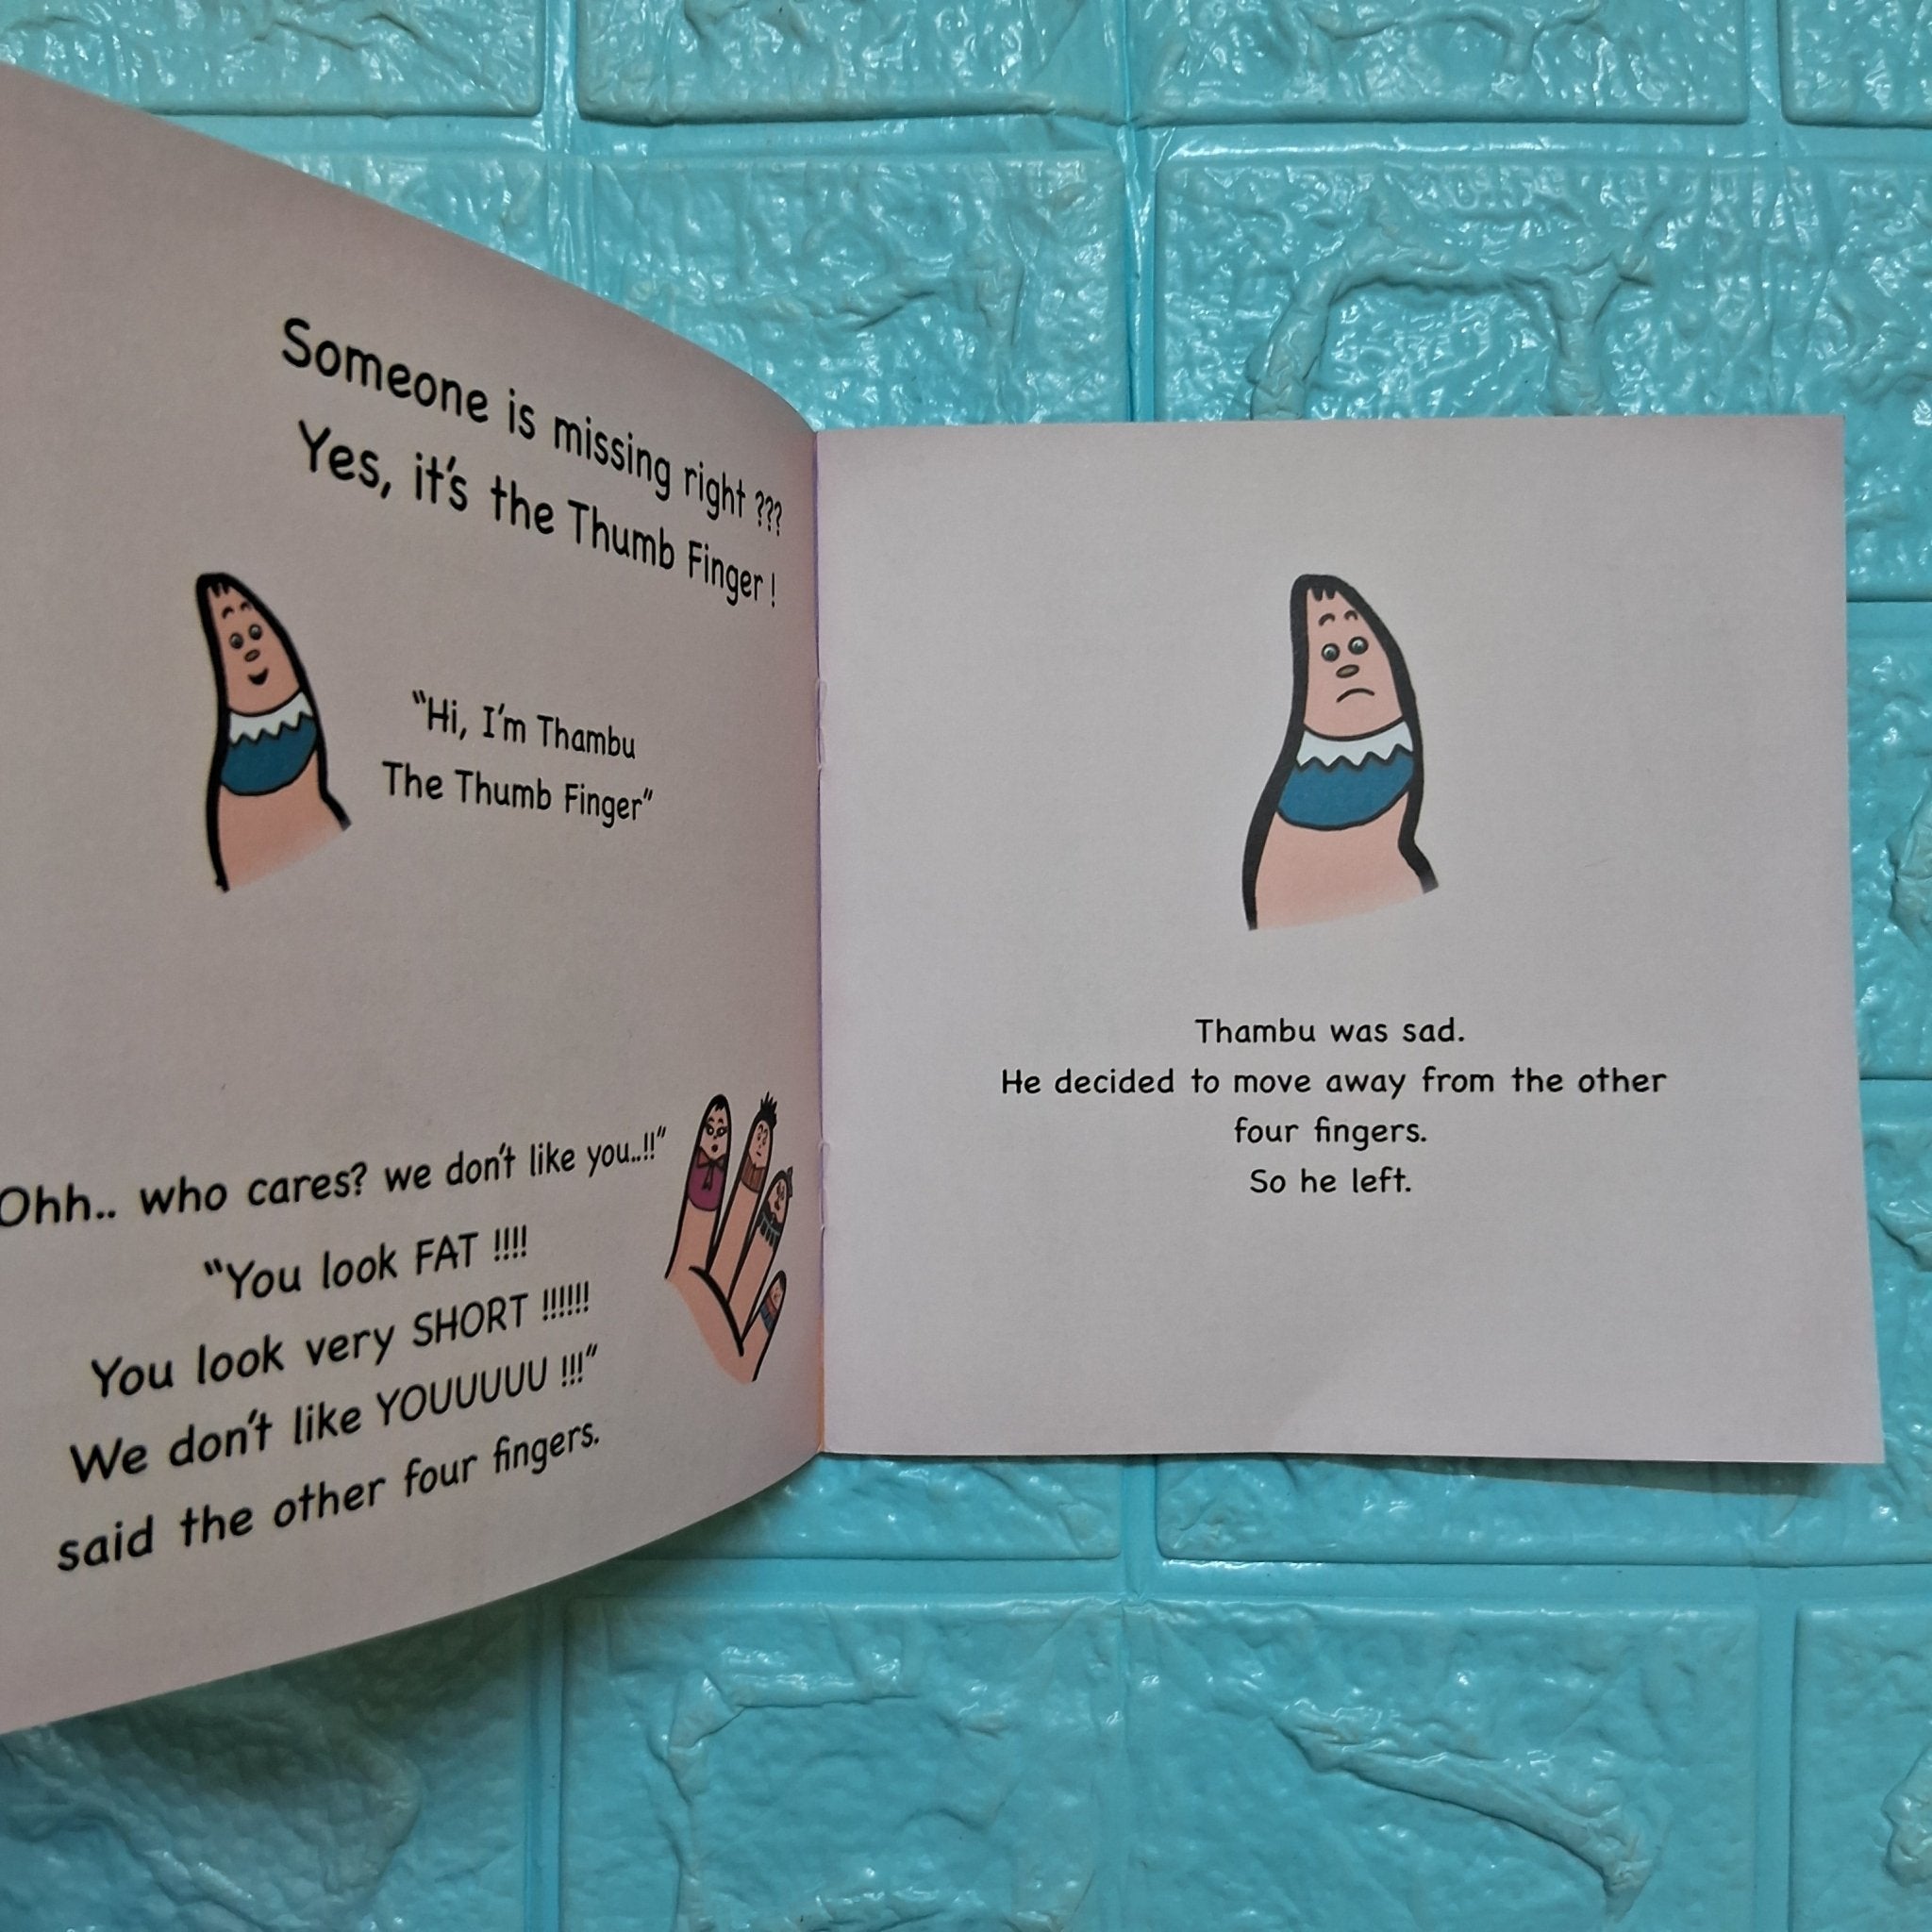 Someone is missing right ???
Yes, it's the Thumb Finger !
"Hi, I'm Thambu
The Thumb Finger"
Ohh.. who cares? we don't like you..!!"
"You look FAT !!!!
You look very SHORT !!!!!!
We don't like YOUUUUU !!!"
said the other four fingers.
Thambu was sad.
He decided to move away from the other
four fingers.
So he left.